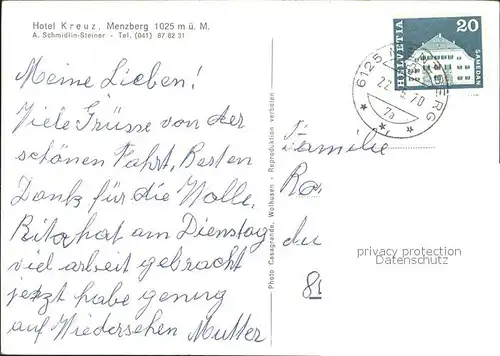 Hotel Kreuz, Menzberg 1025 m ü. M.
A. Schmidlin-Steiner - Tel. (041) 87 82 31
Meine Lieben!
Viele Grüsse von der
schönen Fahrt, Besten
Dank für die Wolle.
Rita hat am Dienstag
viel arbeit gebracht
jetzt habe genug
auf Wiedersehen Mutter
Photo Casagrande, Wolhusen - Reproduktion verboten
HELVETIA
20
SAMEDAN
6125 MENZBERG
22. 5. 70
7a
Familie
Ro
du
81
privacy protection
Datenschutz